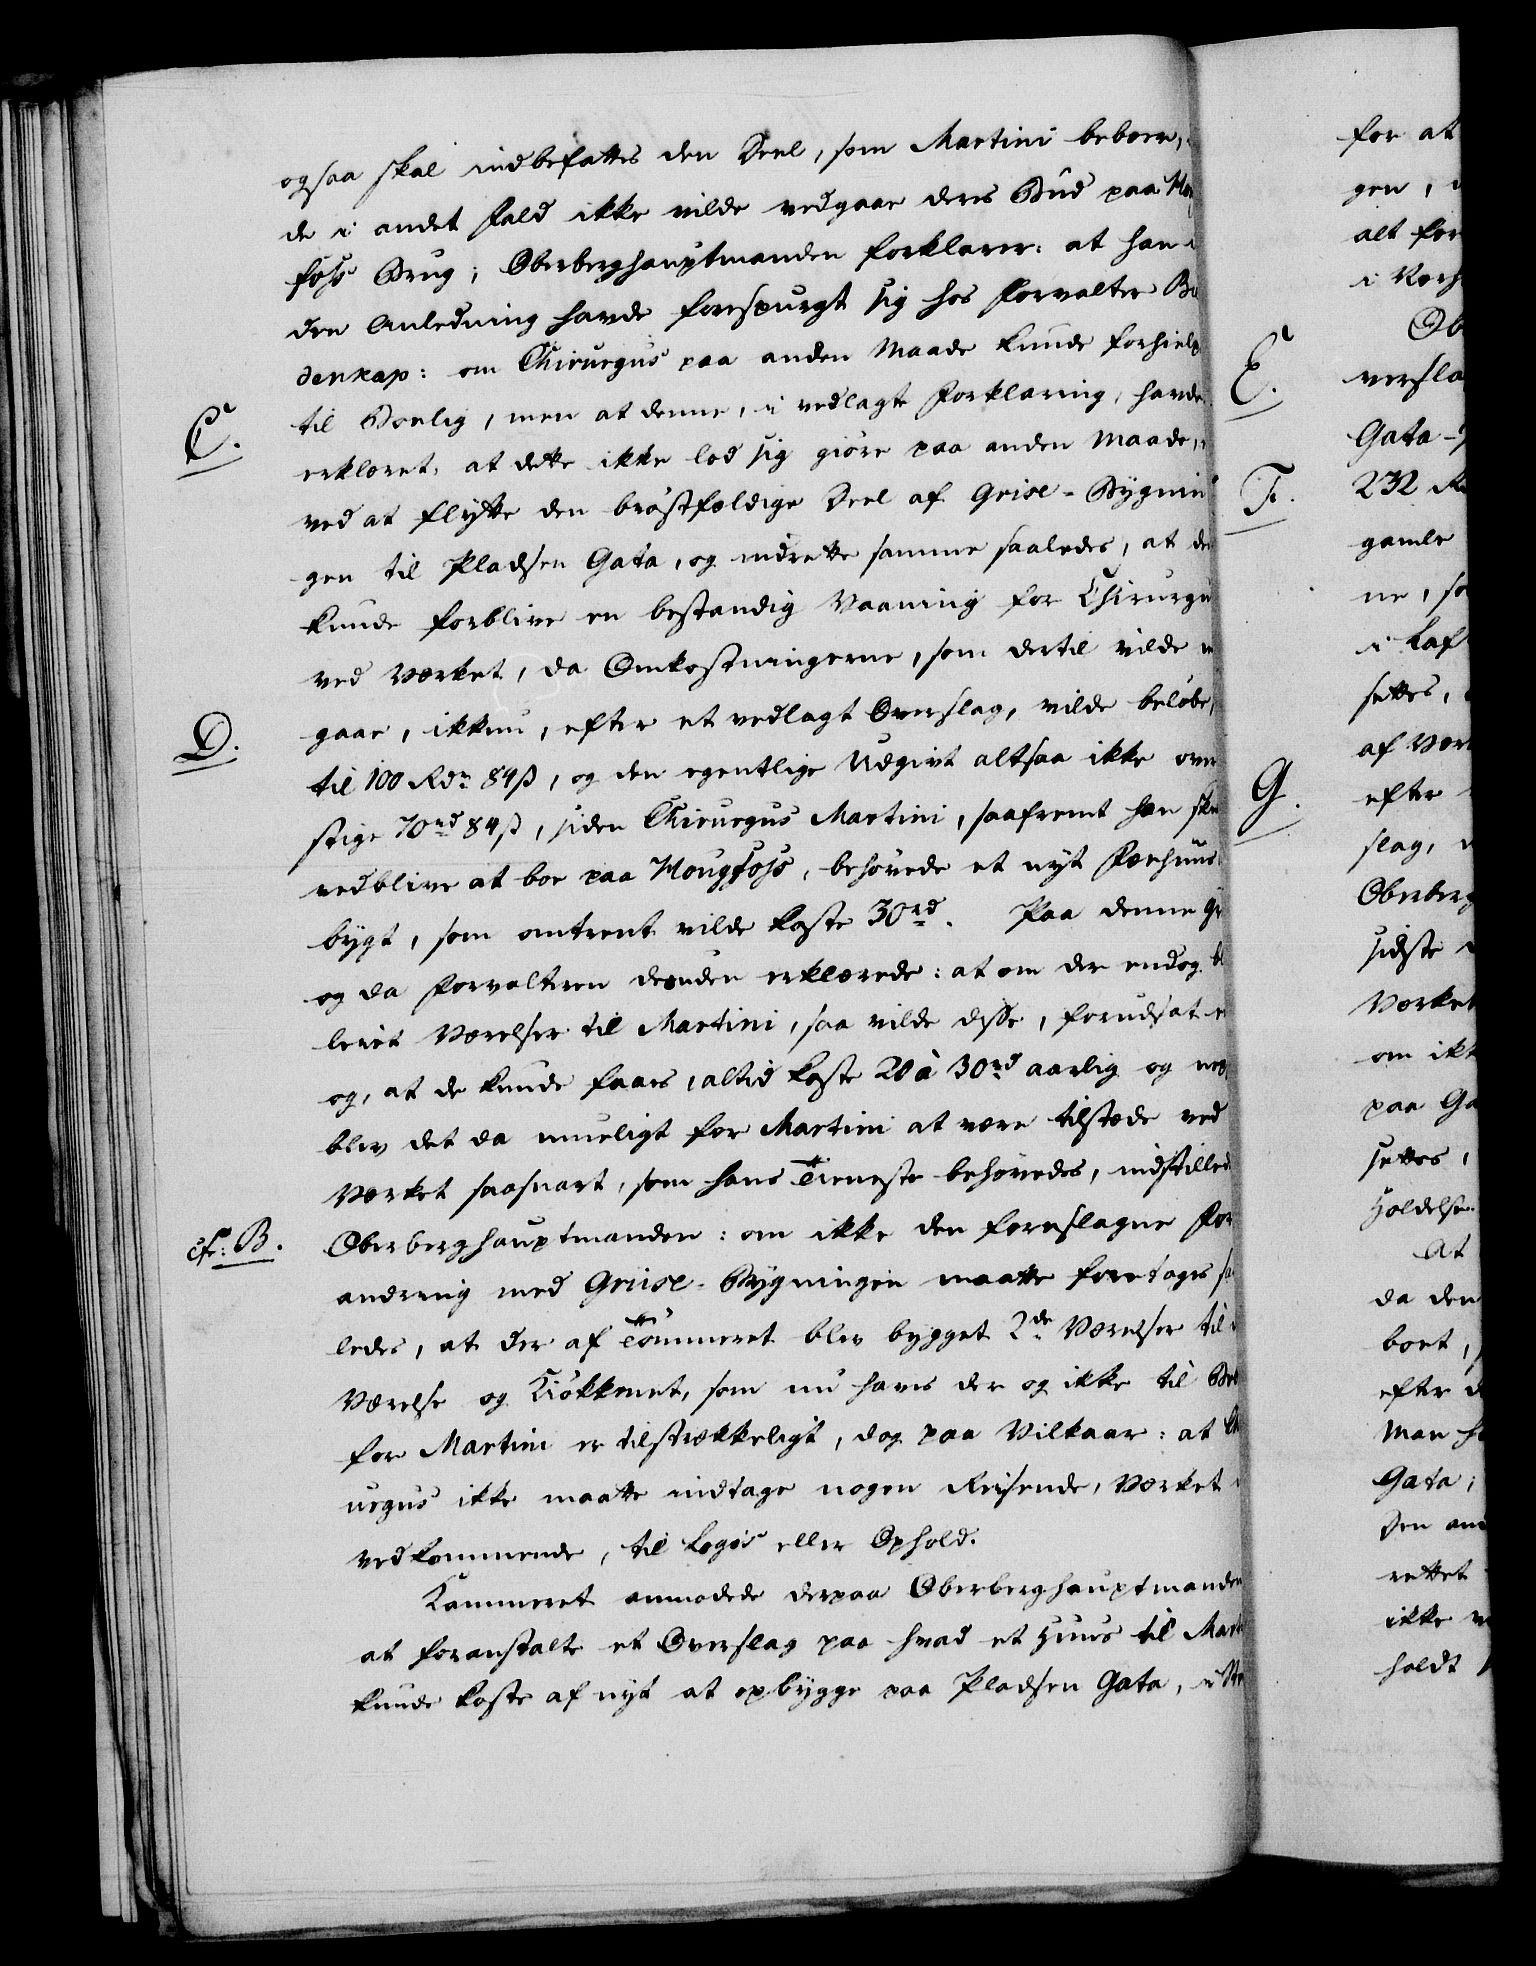 ogsaa skal indbefattes den Deel, som Martini beboer,
de i andet Fald ikke vilde vedgaae deres Bud paa
foss Brug; Oberberghauptmanden forklarer: at han
den Anledning havde forespurgt sig hos Forvalter
denkap: om Chirurgus paa anden Maade kunde forhielp
C.
til Boelig, men at denne, i vedlagte Forklaring, havde
erklæret, at dette ikke lod sig giöre paa anden Maade,
ved at flytte den bröstfældige Deel af Grise-Bygnin
gen til Pladsen Gata, og indrette samme saaledes, at de
kunde forblive en bestandig Vaaning for Chirurgu
ved Værket, da Omkostningerne, som dertil vilde
D.
gaae, ikkun, efter et vedlagt Overslag, vilde belöbe,
til 100 Rdr 84 ß, og den egentlige Udgivt altsaa ikke over
stige 70rd 84 ß, siden Chirurgus Martini, saafremt han
vedblive at boe paa Hougfoss, behövede et nyt Fæehuus
bygt, som omtrent vilde koste 30rd. Paa denne
og da Forvalteren desuden erklærede: at om der endog
leiet Værelser til Martini, saa vilde disse, forudsat
og, at de kunde faaes, altid koste 20 à 30rd aarlig og
blev det da mueligt for Martini at være tilstæde ved
Værket saasnart, som hans Tieneste behövedes, indstilled
cfr: B.
Oberberghauptmanden: om ikke den foreslagne For
andring med Griise-Bygningen maatte foretages
ledes, at der af Tömmeret blev bygget 2de Værelser til
Værelse og Kiökkenet, som nu haves der og ikke til
for Martini er tilstrækkeligt, dog paa Vilkaar: at
urgus ikke maatte indtage nogen Reisende, Værket
vedkommende, til Logis eller Ophold.
Kammeret anmodede derpaa Oberberghauptmanden
at foranstalte et Overslag paa hvad et Huus til Mart
kunde koste af nyt at opbygge paa Pladsen Gata, i
for at
gen,
alt for
i
Ob
E.
versla
Gata-
F.
232
gamle
ne, so
i Laf
settes,
af Vær
G.
efter
slag,
Oberberg
sidste
Værket
om ikk
paa Ga
settes,
Holdelse
At
da den
boet,
efter d
Man h
Gata;
Den an
rettet
ikke
holdt